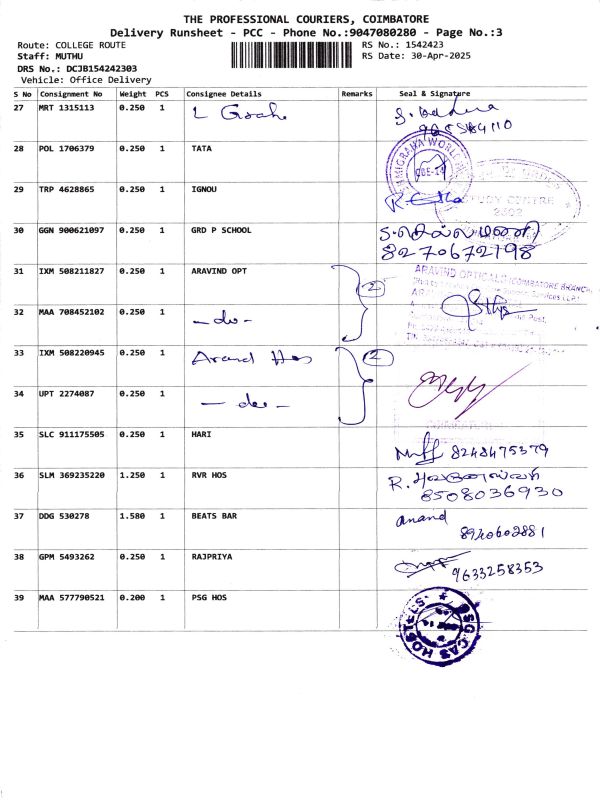 THE PROFESSIONAL COURIERS, COIMBATORE
Delivery Runsheet - PCC - Phone No.:9047080280 - Page No.:3
Route: COLLEGE ROUTE RS No.: 1542423
Staff: MUTHU RS Date: 30-Apr-2025
DRS No.: DCJB154242303
Vehicle: Office Delivery
S No Consignment No Weight PCS Consignee Details Remarks Seal & Signature
27 MRT 1315113 0.250 1
28 POL 1706379 0.250 1 TATA
29 TRP 4628865 0.250 1 IGNOU
STUDY CENTRE
30 GGN 900621097 0.250 1 GRD P SCHOOL
8270672198
31 IXM 508211827 0.250 1 ARAVIND OPT 2
32 MAA 708452102 0.250 1 - do -
33 IXM 508220945 0.250 1 Aravind Hos 2
34 UPT 2274087 0.250 1 - do -
35 SLC 911175505 0.250 1 HARI
8248475379
36 SLM 369235220 1.250 1 RVR HOS
8508036930
37 DDG 530278 1.580 1 BEATS BAR anand
38 GPM 5493262 0.250 1 RAJPRIYA
9633258353
39 MAA 577790521 0.200 1 PSG HOS
PSG CAS HOSTELS